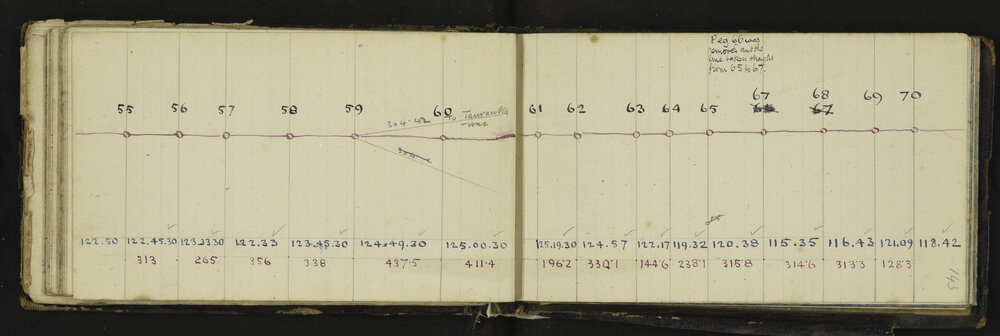 Peg 66 was
removed and the
line taken straight
from 65 to 67.
55 56 57 58 59 60 61 62 63 64 65 67 68 69 70
66 67
304.42 to
122.50 122.45.30 123.33.30 122.33 123.45.30 124.49.30 125.00.30 125.19.30 124.57 122.17 119.32 120.38 115.35 116.43 121.09 118.42
313 265 356 338 437.5 411.4 196.2 330.1 144.6 238.1 315.8 314.6 313.3 128.3
143